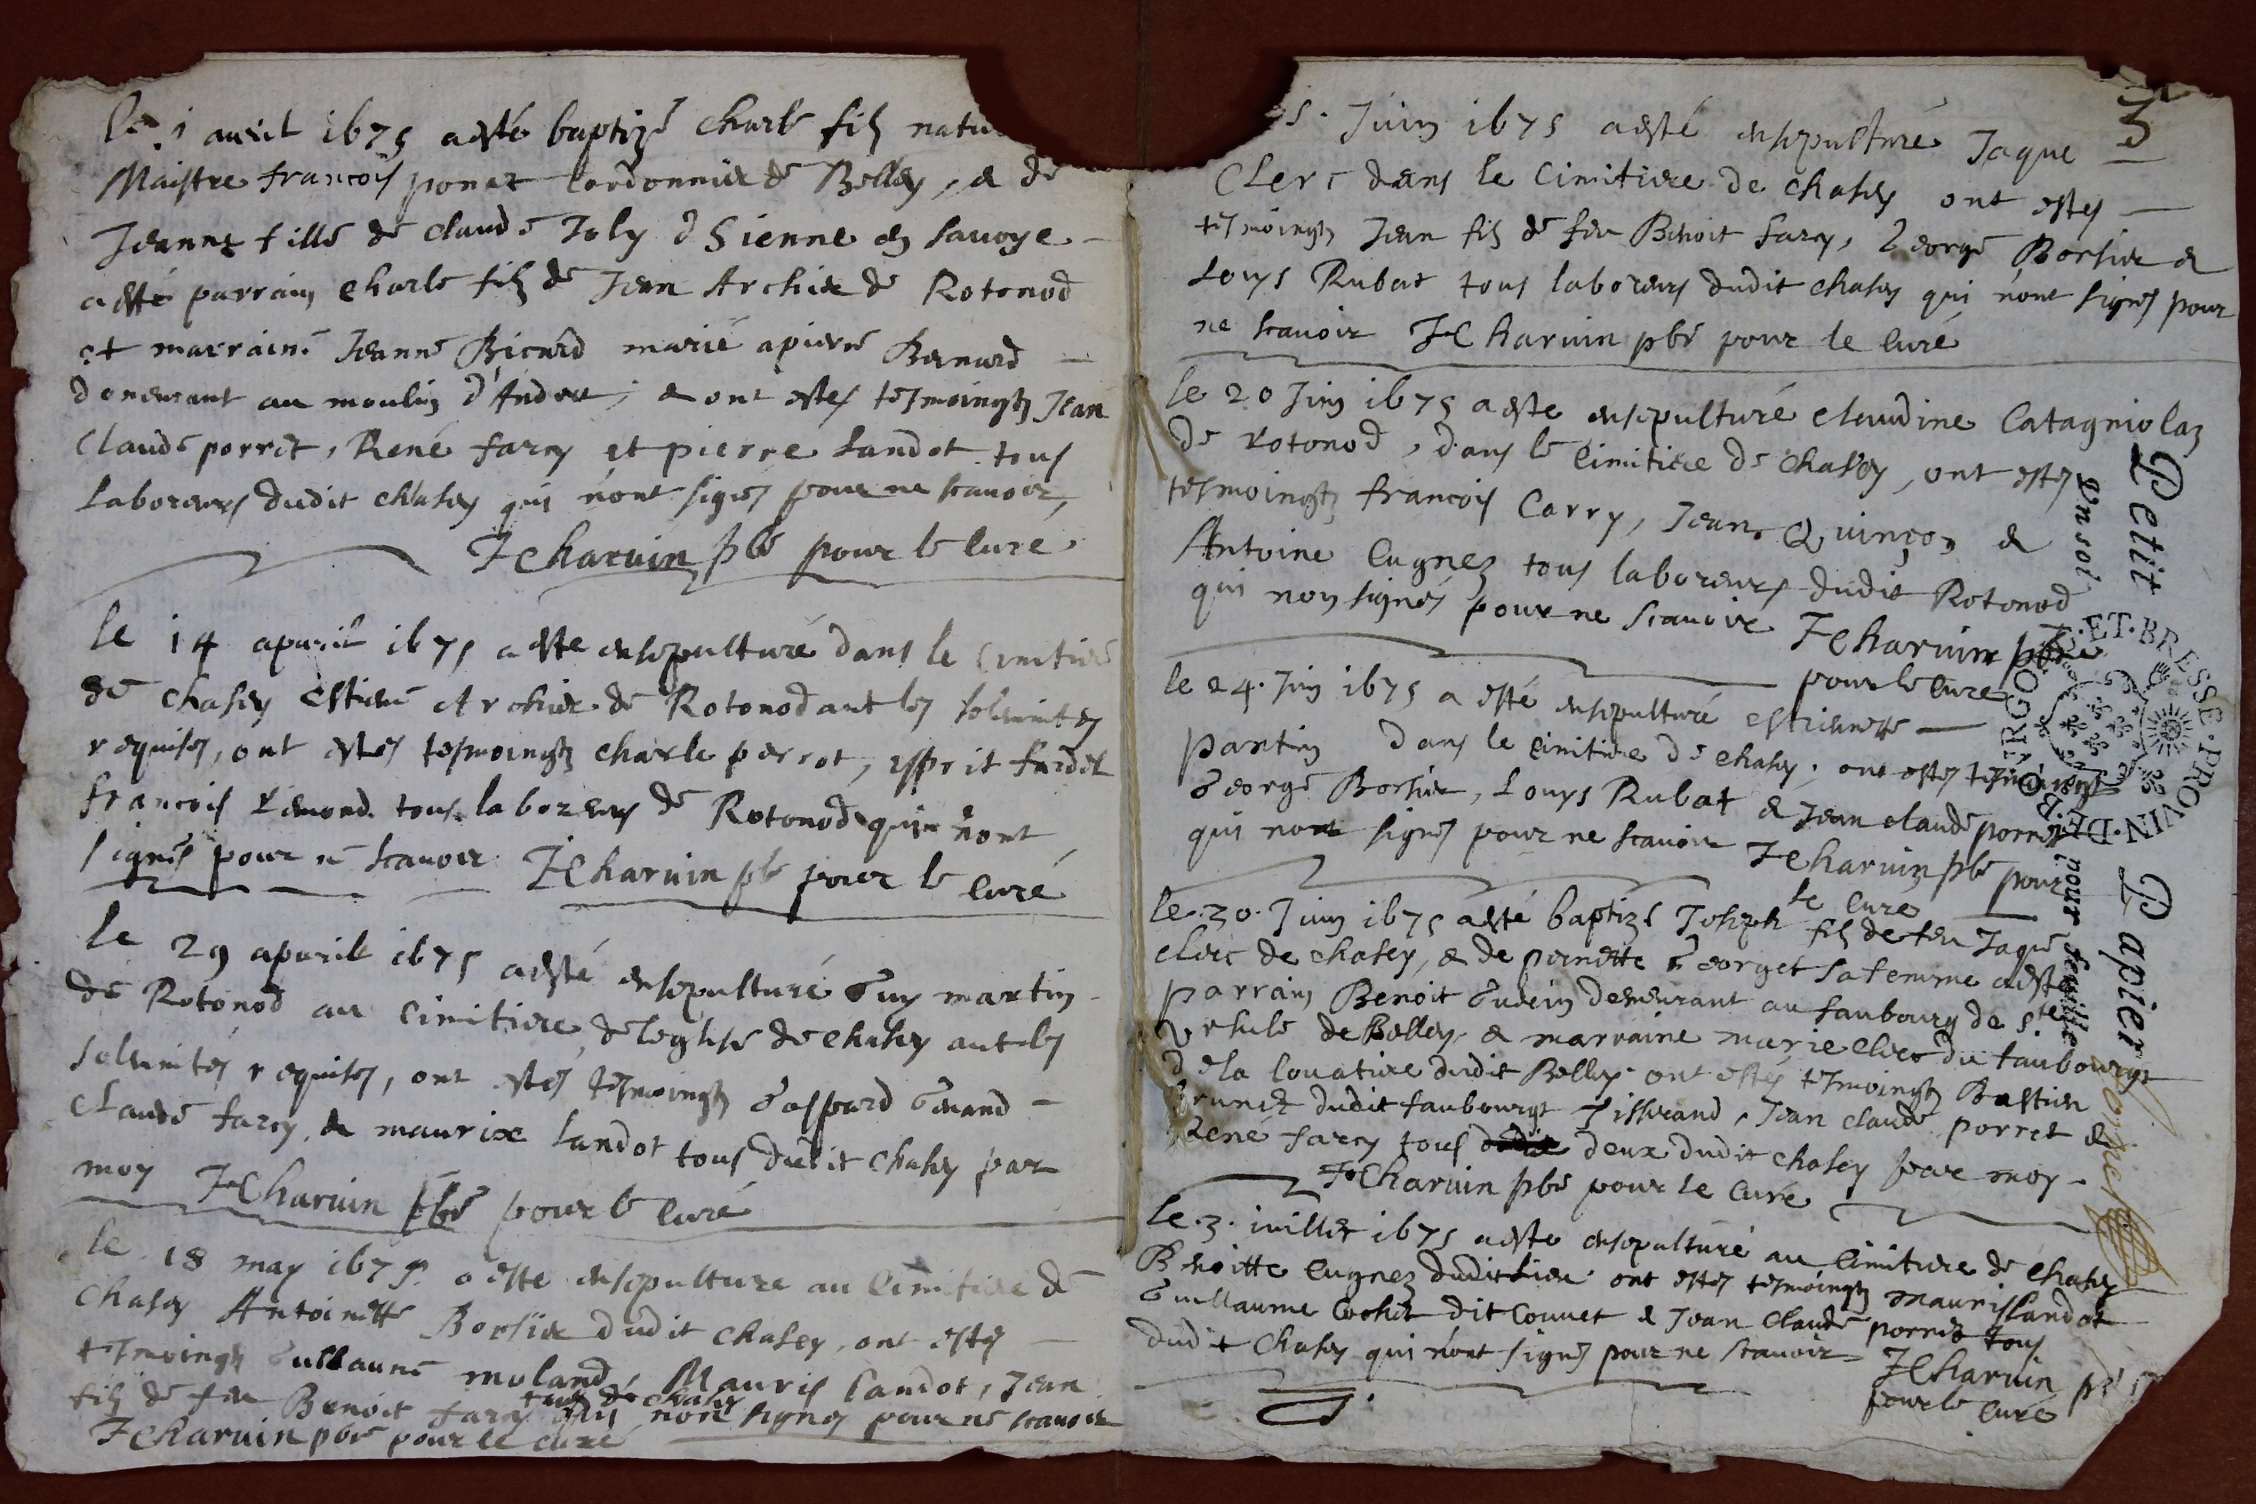 le 1 auril 1675 a esté baptizé charle filz natu
Maistre francois ponet cordonnier de Belley, & de
Jeanne fille de claude Joly d'Sienne en Sauoye
a esté parrain charle filz de Jean Archier de Rotonod
et marraine Jeanne Bicard marié a pierre Bernard
demeurant au moulin d'Andert; & ont estes tesmoingtz Jean
Claude porret, René farcy et pierre Landot tous
Laboreurs dudit chasey qui n'ont signes pour ne scauoir,
J Charuin pbr pour le Curé
le 14 apuril 1675 a esté ensepulturé dans le Cimitiere
de Chasey Estiene Archier de Rotonod auec les solemnites
requises, ont estes tesmoingtz charle perrot, esprit fardet
francois remond tous laboreurs de Rotonod qui n'ont
signés pour ne scauoir J Charuin pbr pour le Curé
le 29 apuril 1675 a esté ensepulturé Guy martin
de Rotonod au Cimitiere de l'eglise de Chasey auec les
solemnités requises, ont estes tesmoingtz Gaspard Genand
Claude farcy, & maurice Landot tous dudit Chasey par
moy J Charuin pbre pour le Curé
le 18 may 1675 a este ensepulture au Cimitiere de
Chasey Antoinette Borsier dudit chasey, ont estes
tesmoingtz Guillaume moland, Mauris Landot, Jean
tous de chasey
filz de feu Benoit farcy qui n'ont signes pour ne scauoir
J Charuin pbre pour le curé
3
5. Juin 1675 a esté ensepulturé Jaque
Clerc dans le Cimitiere de chasey ont estes
tesmoingtz Jean filz de feu Benoit farcy, George Borsier &
Louys Rubat tous laboreurs dudit chasey qui n'ont signes pour
ne scauoir J Charuin pbr pour le Curé
le 20 Juin 1675 a este ensepulturé Claudine Catagniolaz
de rotonod, dans le Cimitiere de chasey, ont estes
tesmoingtz francois Carry, Jean Quinçon &
Antoine Cugnez tous laboreurs dudit Rotonod
qui non signés pour ne scauoir J Charuin pbre
pour le Curé
le 24. Juin 1675 a esté ensepulturé estiennette
pantin dans le Cimitiere de chasey, ont estes tesmoingtz
George Borsier, Louys Rubat & Jean claude porret
qui n'ont signes pour ne scauoir J Charuin pbr pour
le Curé
le 30. Juin 1675 a esté baptizé Joseph filz de feu Jaque
clerc de chasey, & de pernette Georget sa femme a este
parrain Benoit Gudein demeurant au faubourg de Ste
Vrsule de Belley & marraine marie clerc du faubourgt
de la louatiere dudit Belley. ont estés tesmoingtz Bastien
brunet dudit faubourgt Tisserand, Jean claude porret &
René farcy tous deux dudit chasey par moy
J Charuin pbr pour le Curé
le 3. iuillet 1675 a este ensepulturé au Cimitiere de chasey
Benoitte Cugnez dudit lieu ont estes tesmoingtz mauris Landot
Guillaume Cochet dit Couuet & Jean Claude porret tous
dudit Chasey qui n'ont signes pour ne scauoir J Charuin pbr
pour le Curé
Petit Papier
Vn sol pour feuille
ET·BRESSE·PROVIN·DE·BOVRGO